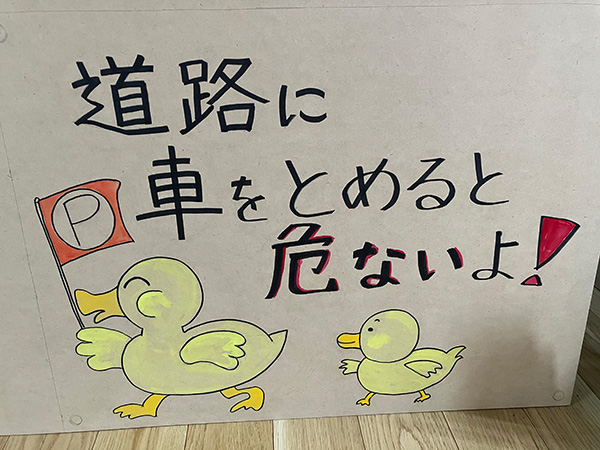 道路に
車をとめると
危ないよ!
P